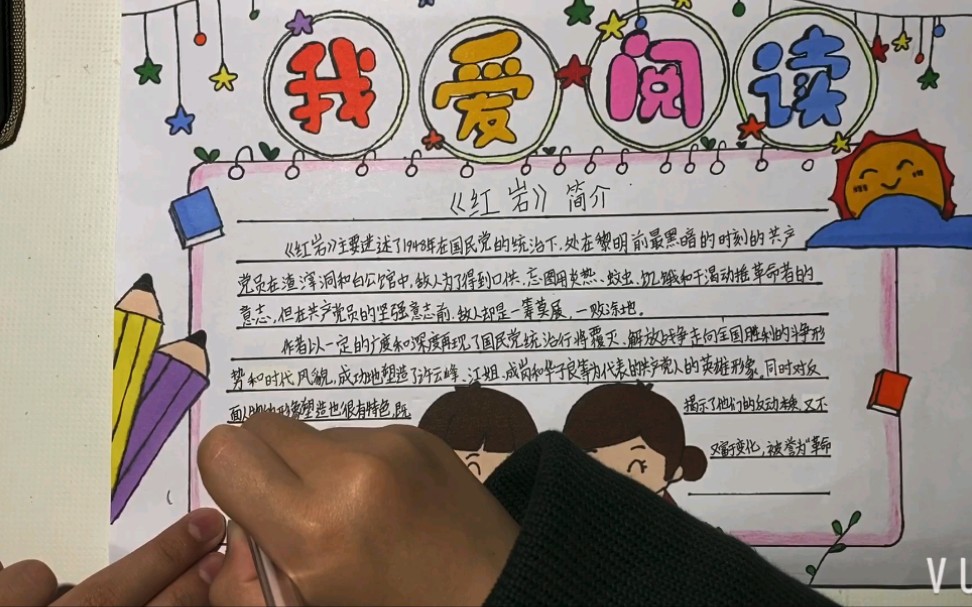 我爱阅读
《红岩》简介
《红岩》主要迷述了1948年在国民党的统治下，处在黎明前最黑暗的时刻的共产
党员在渣滓洞和白公馆中，敌人为了得到口供，忘图用炎热、蚊虫、饥饿和干渴动摇革命者的
意志，但在共产党员的坚强意志前，敌人却是一筹莫展，一败涂地。
作者以一定的广度和深度再现了国民党统治行将覆灭、解放战争走向全国胜利的斗争形
势和时代风貌，成功地塑造了许云峰、江姐、成岗和华子良等为代表的共产党人的英雄形象。同时对反
面人物的形象塑造也很有特色，既 揭示了他们的反动本质，又不
又富于变化，被誉为“革命
VU